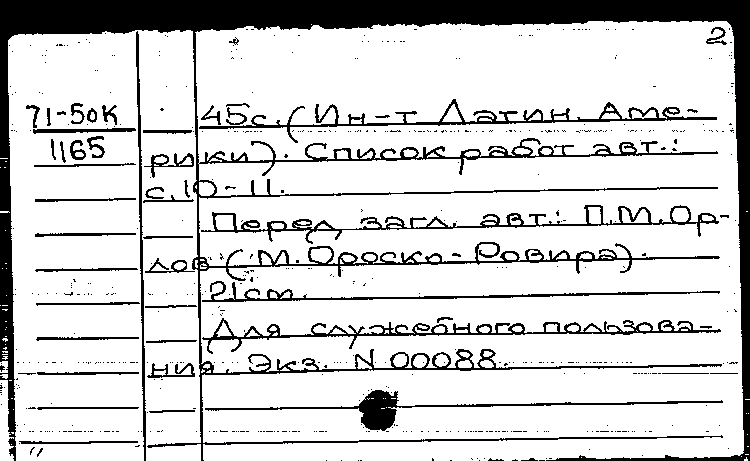 2
71-50к 45с. (Ин-т Латин. Аме-
1165 рики). Список работ авт.:
с.10-11.
Перед загл. авт.: П.М.Ор-
лов (М.Ороско-Ровира).
21см.
Для служебного пользова-
ния. Экз. N 00088.